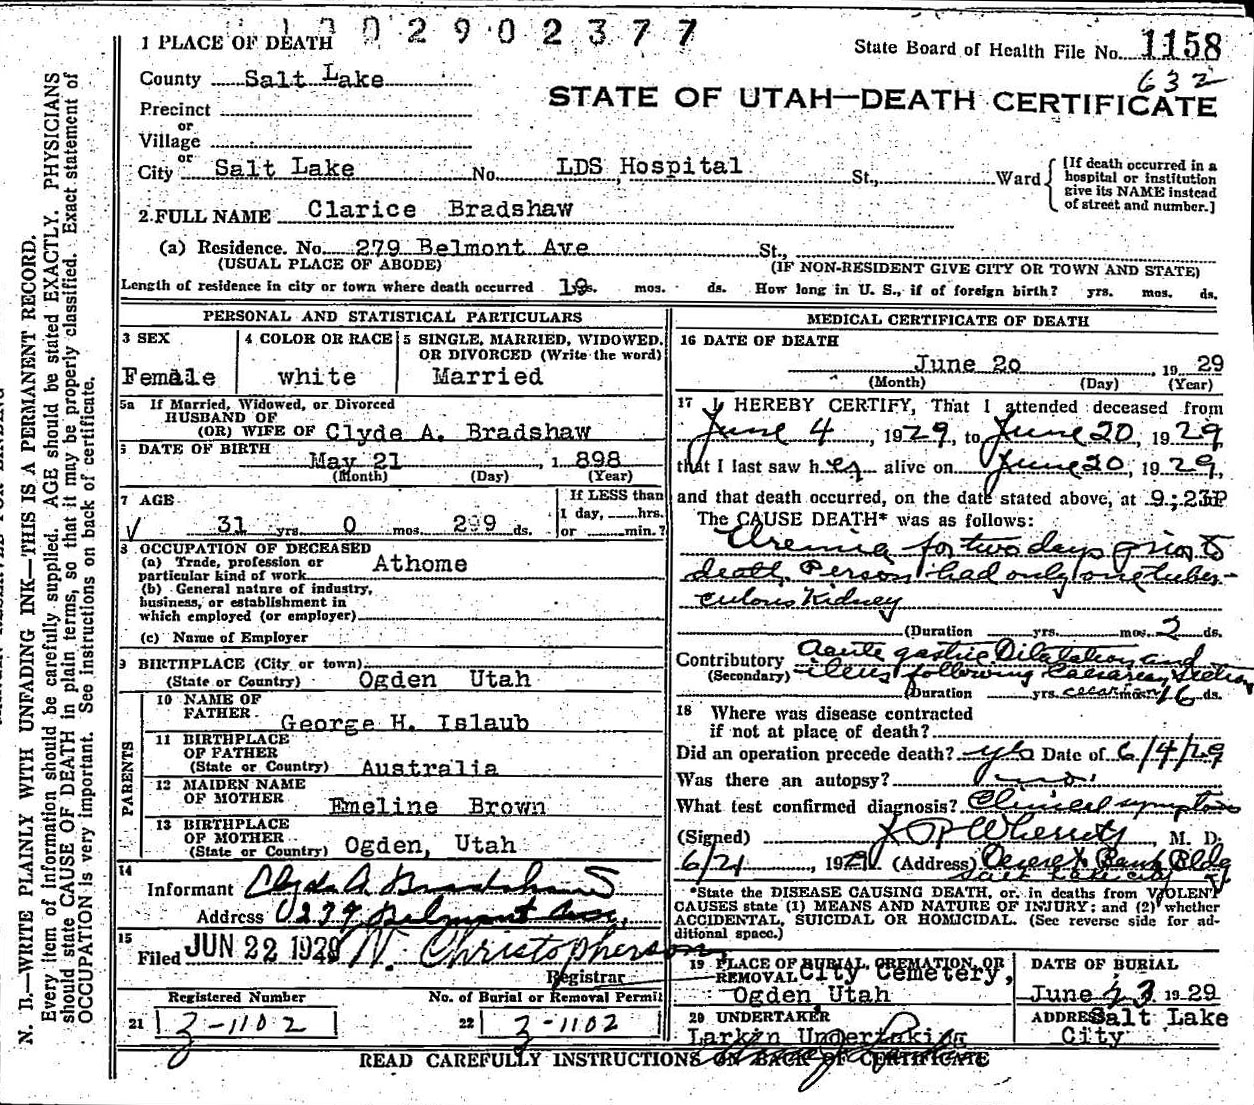 1 0 0 2 9 0 2 3 7 7
1 PLACE OF DEATH
State Board of Health File No. 1158
632
County Salt Lake
STATE OF UTAH—DEATH CERTIFICATE
Precinct
or
Village
or
City Salt Lake No. LDS Hospital St., Ward
[If death occurred in a
hospital or institution
give its NAME instead
of street and number.]
2 FULL NAME Clarice Bradshaw
(a) Residence. No. 279 Belmont Ave St.,
(USUAL PLACE OF ABODE) (IF NON-RESIDENT GIVE CITY OR TOWN AND STATE)
Length of residence in city or town where death occurred yrs. mos. ds. How long in U. S., if of foreign birth? yrs. mos. ds.
PERSONAL AND STATISTICAL PARTICULARS
3 SEX
Female
4 COLOR OR RACE
white
5 SINGLE, MARRIED, WIDOWED,
OR DIVORCED (Write the word)
Married
5a If Married, Widowed, or Divorced
HUSBAND OF
(OR) WIFE OF Clyde A. Bradshaw
6 DATE OF BIRTH
May 21 , 1 898
(Month) (Day) (Year)
7 AGE
31 yrs. 0 mos. 29 ds.
If LESS than
1 day, hrs.
or min.?
8 OCCUPATION OF DECEASED
(a) Trade, profession or
particular kind of work Athome
(b) General nature of industry,
business, or establishment in
which employed (or employer)
(c) Name of Employer
9 BIRTHPLACE (City or town)
(State or Country) Ogden Utah
PARENTS
10 NAME OF
FATHER George H. Islaub
11 BIRTHPLACE
OF FATHER
(State or Country) Australia
12 MAIDEN NAME
OF MOTHER Emeline Brown
13 BIRTHPLACE
OF MOTHER
(State or Country) Ogden, Utah
14
Informant Clyde A. Bradshaw
Address Belmont Ave,
15
Filed JUN 22 1929 N. Christopherson
Registrar
Registered Number
21 3-1102
No. of Burial or Removal Permit
22 3-1102
MEDICAL CERTIFICATE OF DEATH
16 DATE OF DEATH
June 20 , 19 29
(Month) (Day) (Year)
17 I HEREBY CERTIFY, That I attended deceased from
June 4, 1929, to June 20, 1929,
that I last saw her alive on June 20, 1929,
and that death occurred, on the date stated above, at 9:23P
The CAUSE DEATH* was as follows:
Uremia for two days prior to
death. Person had only one tuber-
culous Kidney
(Duration yrs. mos. 2 ds.
Contributory Acute gastric Dilatation and
(Secondary) ileus following Caesarean Section
(Duration yrs. mos. 16 ds.
18 Where was disease contracted
if not at place of death?
Did an operation precede death? yes Date of 6/4/29
Was there an autopsy? no.
What test confirmed diagnosis? Clinical symptoms
(Signed) Wherritt, M. D.
6/21 1929. (Address) Deseret Bank Bldg
Salt Lake City
*State the DISEASE CAUSING DEATH, or, in deaths from VIOLENT
CAUSES state (1) MEANS AND NATURE OF INJURY; and (2) whether
ACCIDENTAL, SUICIDAL OR HOMICIDAL. (See reverse side for ad-
ditional space.)
19 PLACE OF BURIAL, CREMATION, OR
REMOVAL City Cemetery,
Ogden Utah
DATE OF BURIAL
June 23 1929
20 UNDERTAKER
Larkin Undertaking
ADDRESS Salt Lake
City
READ CAREFULLY INSTRUCTIONS ON BACK OF CERTIFICATE
N. B.—WRITE PLAINLY WITH UNFADING INK—THIS IS A PERMANENT RECORD.
Every item of information should be carefully supplied. AGE should be stated EXACTLY. PHYSICIANS
should state CAUSE OF DEATH in plain terms, so that it may be properly classified. Exact statement of
OCCUPATION is very important. See instructions on back of certificate.